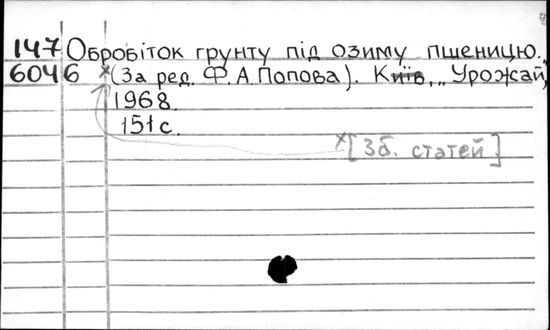 147 Обробіток грунту під озиму пшеницю.
6046 x (За ред. Ф.А.Попова). Київ, „Урожай,
1968.
151 с.
x [Зб. статей]